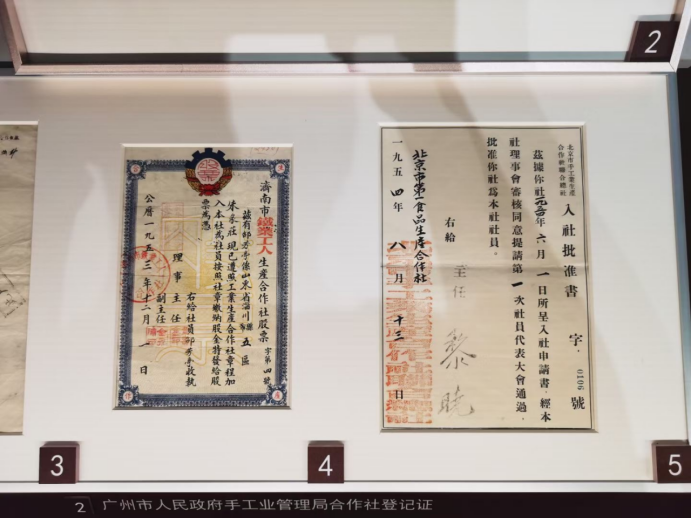 2
濟南市鐵業工人生產合作社股票
字第四號
茲有邱芳亭係山東省淄川縣五區
朱家莊現已遵照工業生產合作社章程加
入本社為社員按照社章繳納股金特發給股
票為憑
右給社員邱芳亭收執
理事主任
副主任
公曆一九五三年十二月一日
北京市手工業生產
合作社聯合總社
入社批准書
字
0106
號
茲據你社一九五四年六月一日所呈入社申請書經本
社理事會審核同意提請第一次社員代表大會通過
批准你社為本社社員
右給
北京市第一食品生產合作社
主任
黎曉
一九五四年八月十三日
3
4
5
2 广州市人民政府手工业管理局合作社登记证